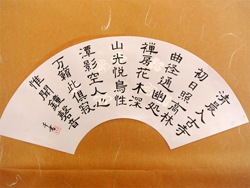 清晨入古寺
初日照高林
曲径通幽処
禪房花木深
山光悦鳥性
潭影空人心
万籟此俱寂
惟聞鐘磬音